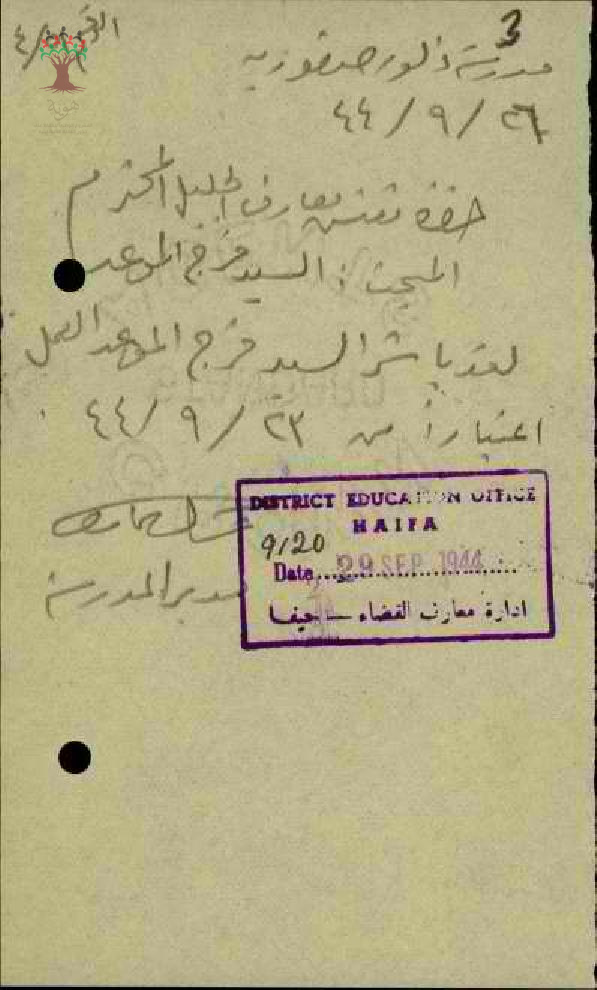 3
مدرسة ذكور صفورية
٢٦ / ٩ / ٤٤
حضرة مفتش معارف الجليل المحترم
المبحث : السيد فرج
لقد باشر السيد فرج العمل
اعتباراً من ٢٣ / ٩ / ٤٤
DISTRICT EDUCATION OFFICE
HAIFA
9/20
Date 29 SEP 1944
ادارة معارف القضاء - حيفا
مدير المدرسة